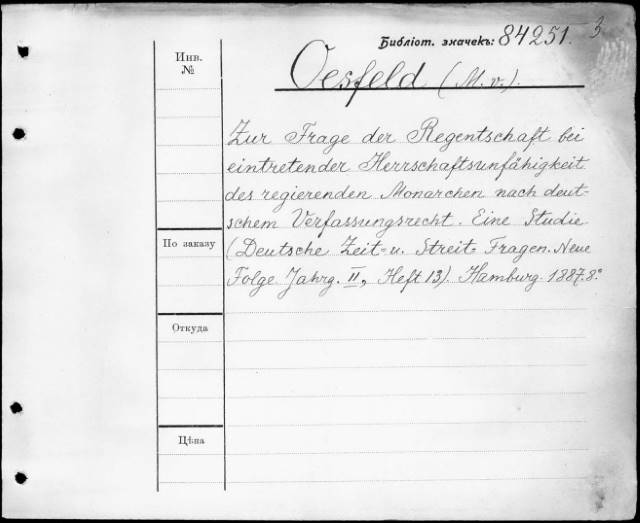 Библіот. значекъ: 84251. 3
Инв. №
Oesfeld (M. v.).
Zur Frage der Regentschaft bei
eintretender Herrschaftsunfähigkeit
des regierenden Monarchen nach deut-
schem Verfassungsrecht. Eine Studie
По заказу
(Deutsche Zeit- u. Streit- Fragen. Neue
Folge Jahrg. II, Heft 13). Hamburg. 1887. 8°.
Откуда
Цѣна